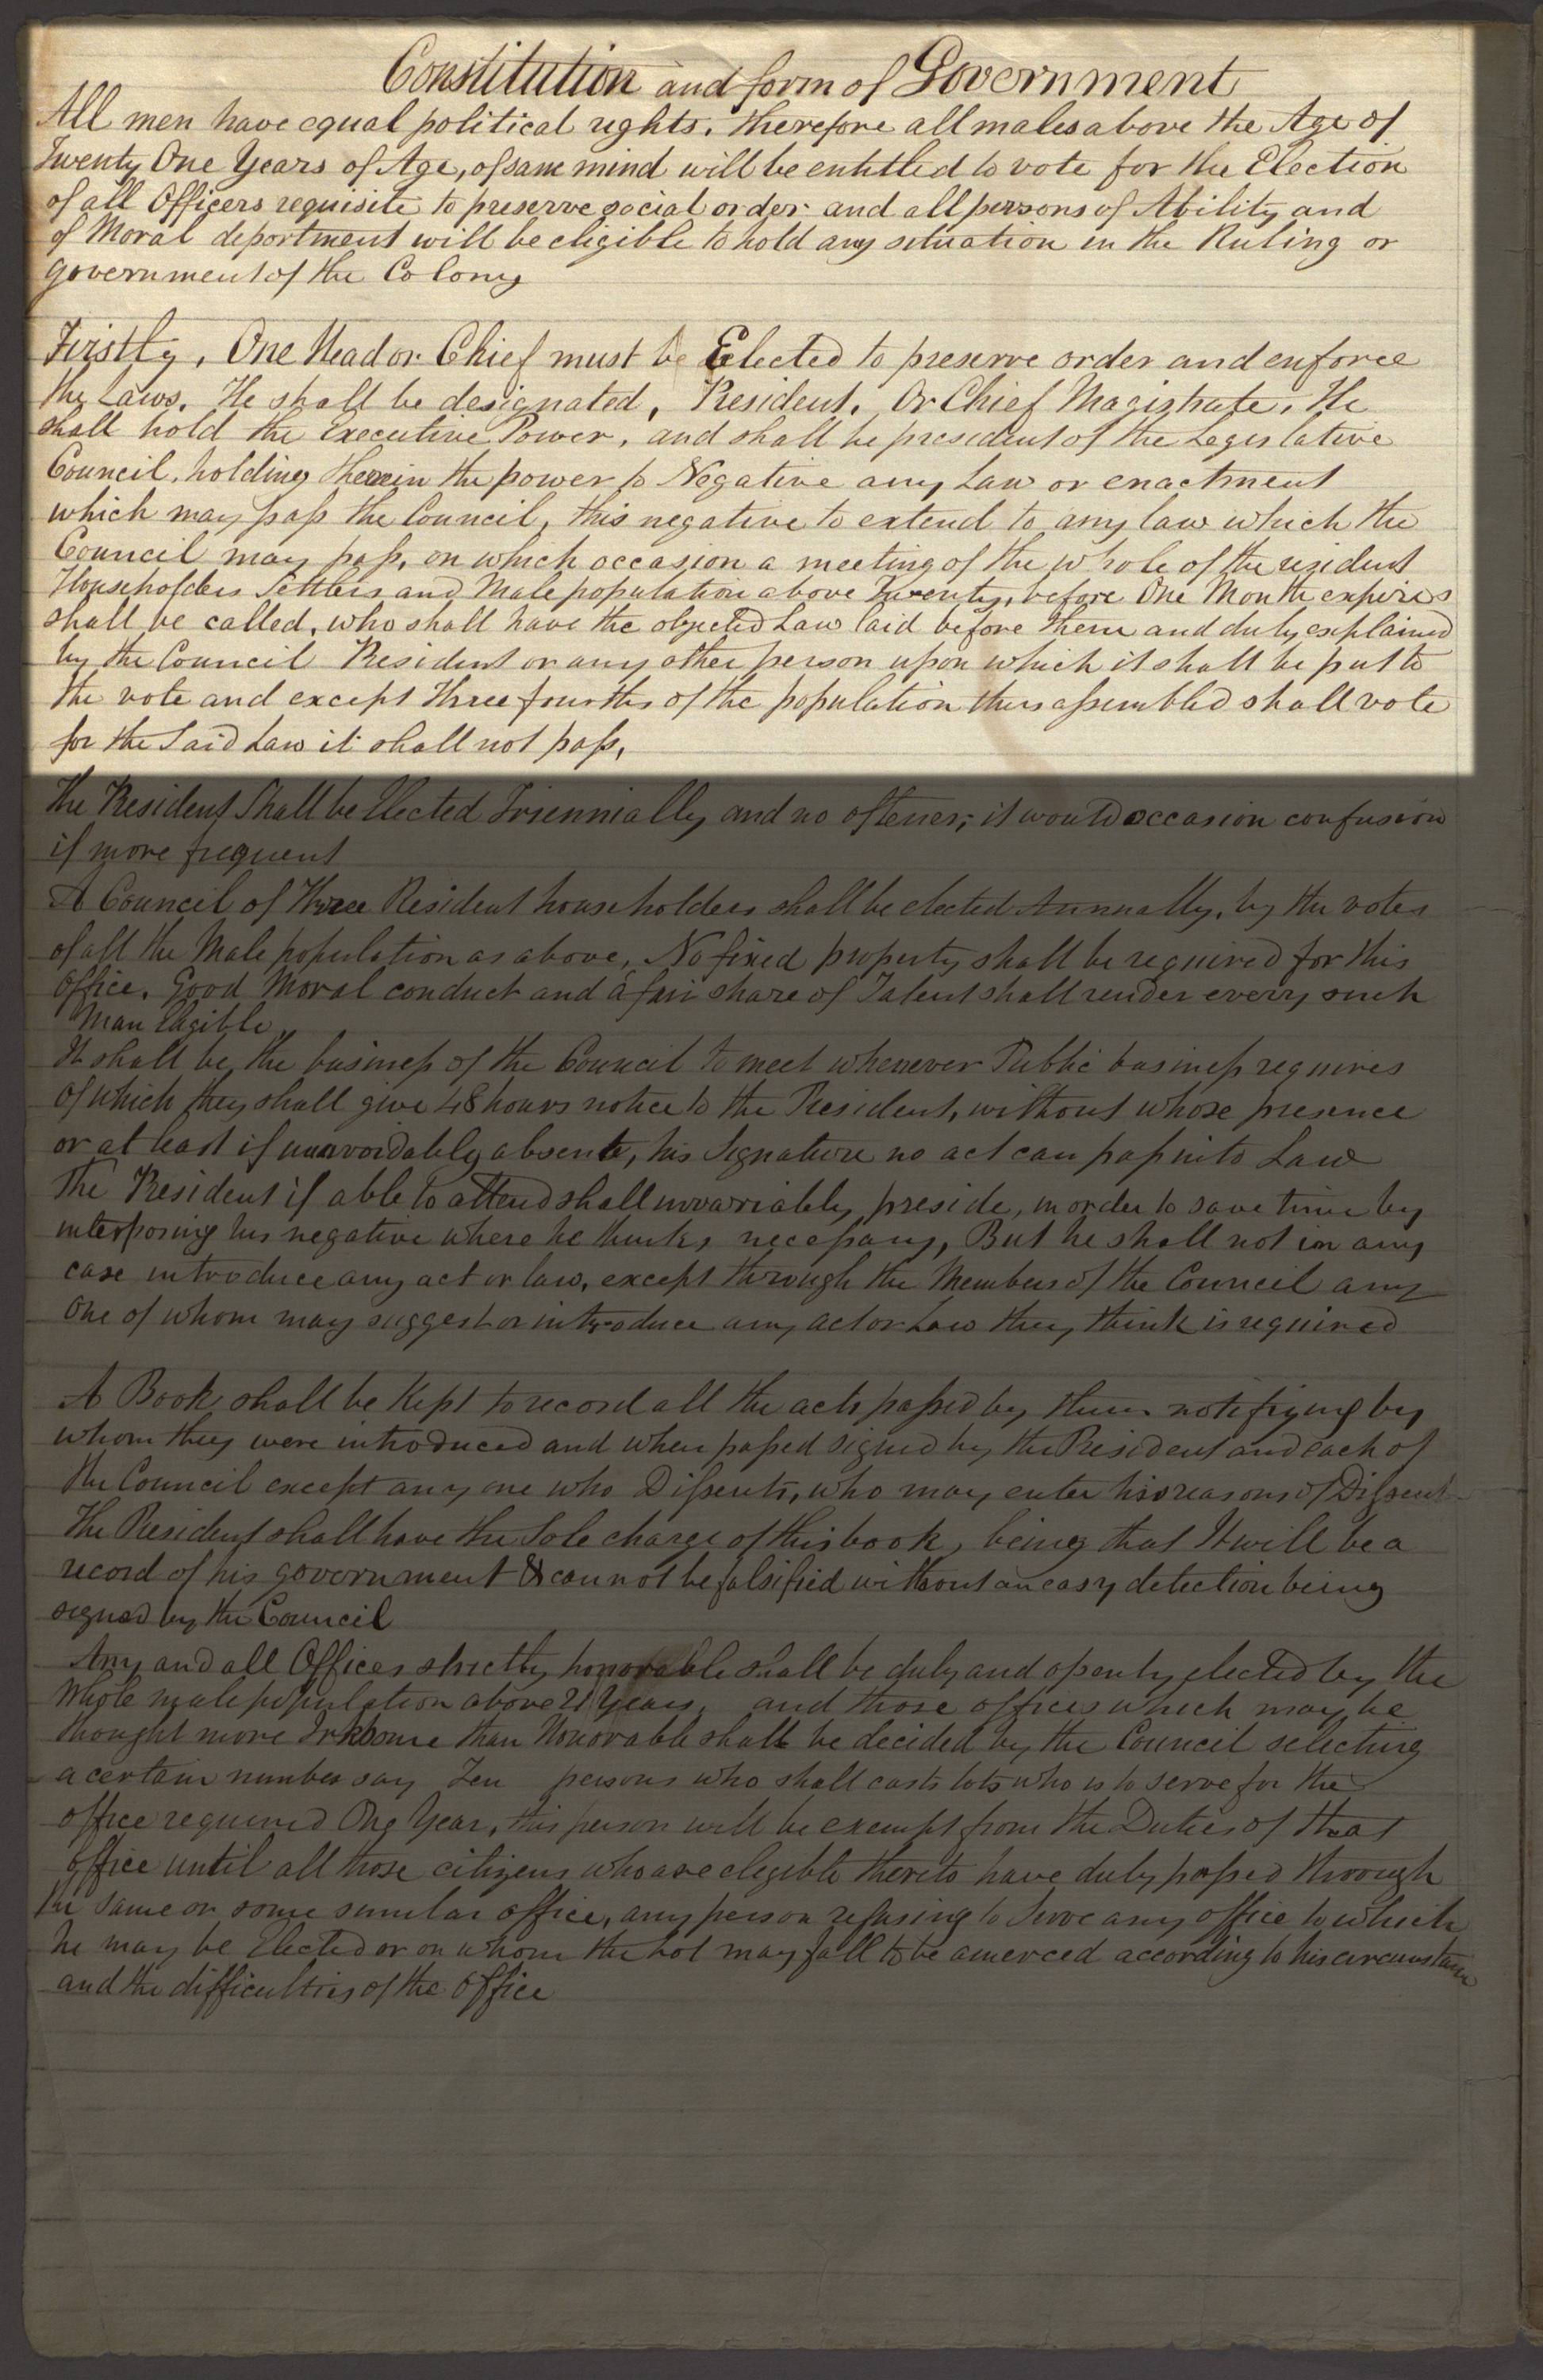 Constitution and form of Government
All men have equal political rights. therefore all males above the Age of
Twenty One Years of Age, of sane mind will be entitled to vote for the Election
of all Officers requisite to preserve social order and all persons of Ability and
of Moral deportment will be eligible to hold any situation in the Ruling or
government of the Colony
Firstly, One Head or Chief must be Elected to preserve order and enforce
the Laws. He shall be designated, President, Or Chief Magistrate, He
shall hold the Executive Power, and shall be president of the Legislative
Council, holding therein the power to Negative any Law or enactment
which may pass the Council, this negative to extend to any law which the
Council may pass, on which occasion a meeting of the whole of the resident
Householders Settlers and Male population above Twenty, before One Month expires
shall be called, who shall have the objected Law laid before them and duly explained
by the Council President or any other person upon which it shall be put to
the vote and except Three fourths of the population thus assembled shall vote
for the Said Law it shall not pass,
The President Shall be Elected Triennially and no oftener; it would occasion confusion
if more frequent
A Council of Three Resident householders shall be elected Annually, by the votes
of all the Male population as above, No fixed property shall be required for this
Office. Good Moral conduct and a fair share of Talent shall render every such
Man Eligible
It shall be the business of the Council to meet whenever Public business requires
of which they shall give 48 hours notice to the President, without whose presence
or at least if unavoidably absent, his Signature no act can pass into Law
The President if able to attend shall invariably preside, in order to save time by
interposing his negative where he thinks necessary, But he shall not in any
case introduce any act or law, except through the Members of the Council any
one of whom may suggest or introduce any act or Law they think is required
A Book shall be Kept to record all the acts passed by them notifying by
whom they were introduced and when passed signed by the President and each of
the Council except any one who Dissents, who may enter his reasons of Dissent
The President shall have the Sole charge of this book, being that It will be a
record of his government & cannot be falsified without an easy detection being
signed by the Council
Any and all Offices strictly honorable shall be duly and openly elected by the
whole male population above 21 Years, and those offices which may be
thought more Irksome than Honorable shall be decided by the Council selecting
a certain number say Ten persons who shall casts lots who is to serve for the
office required One Year, this person will be exempt from the Duties of that
office until all those citizens who are elegible thereto have duly passed through
the same or some similar office, any person refusing to Serve any office to which
he may be Elected or on whom the lot may fall to be amerced according to his circumstance
and the difficulties of the office